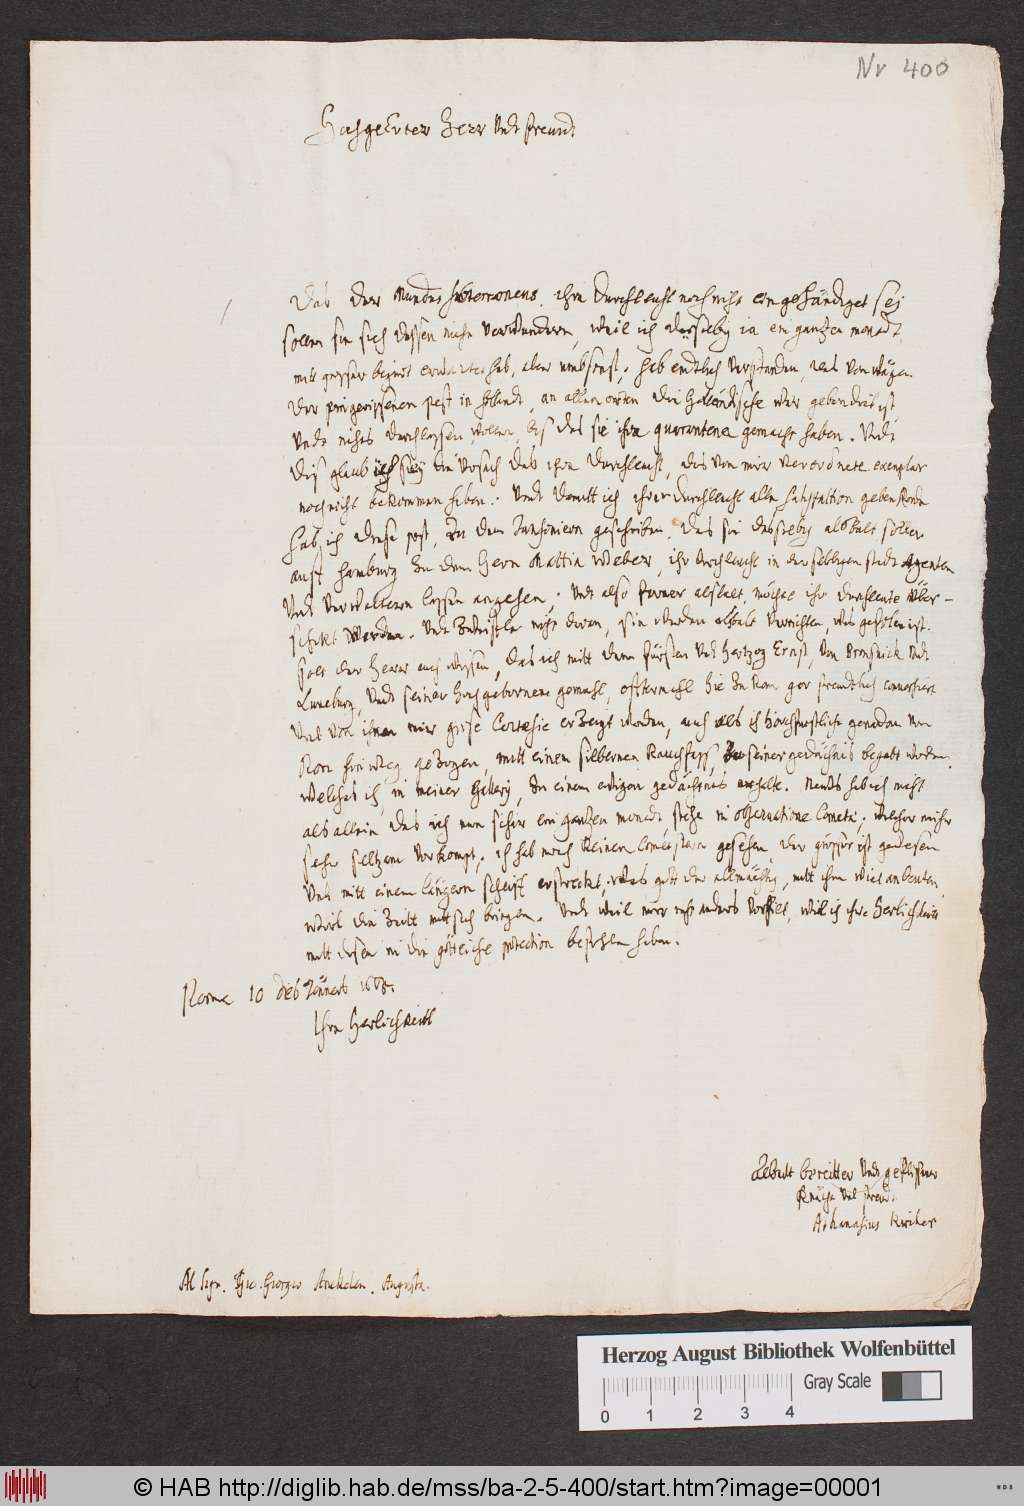 Nr 400
Hochgeerter Herr undt freundt
Das der Mundus subterraneus, ihre Durchleucht noch nicht eingehändiget sej
sollen sie sich dessen nicht verwundern, weil ich ein gantzen monadt
mitt grosser begird erwartet hab, aber umbsonst, hab endtlich verstanden, das von wegen
der pest in Hollandt, an allen orten die Holändische war ist,
undt nichts durchlassen wollen, bis das sie ihre quarantena gemacht haben. Undt
dis glaub ich sey die Ursach das ihre Durchleucht, das von mir verordnete exemplar
noch nicht bekommen haben. Undt damitt ich ihrer Durchleucht alle satisfattion geben könde
hab ich diese post, zu dem Jansonio geschriben, das sie dasselbig alsbalt sollen
auff Hamburg zu dem Hern Mattia Weber, ihr Durchleucht in derselbigen stadt Agenten
undt verwaltern lassen angehen, undt also ferner alsbalt, möchte ihr Durchleucht über-
schickt werden. Undt zweiffle nicht daran, sie werden alsbalt verrichten, was befolen ist.
Soll der Herr auch wissen, das ich mitt dem fürsten undt Hertzog Ernst, von Brunswick undt
Luneburg, undt seiner hochgebornene gemahl, offtermahl hie zu Rom gar freundtlich conversiert
undt von ihnen mir grose Cortesie erzeigt worden, auch als ihr Hochfürstliche genaden von
Rom hinweg gezogen, mitt einem silbernen Rauchfass, zu seiner gedächtnis begabt worden.
welches ich, in meiner Gallery, zu einem ewigen gedächtnis erhalte. Neuws hab ich nicht
als allein das ich nun schir ein gantzen monadt, stehe in observatione Cometæ, welcher mihr
sehr seltzam vorkompt, ich hab noch keinen Cometstern gesehen, der grösser ist gewesen
undt mitt einem längern schweiff erstreckt. Was gott der allmächtig, mitt ihm will andeuten
wirt die Zeitt mitt sich bringen. Undt weil mir nicht anders vorfelt, will ich ihre Herlichkeit
mitt disen in die götteliche protection befohlen haben.
Roma 10 des Jänners 1665.
Ihre Herlichkeitt
bereitter undt geflissener
Knächt undt freundt
Athanasius Kircher
Al Sigr. Gio. Georgio Anckelen. Augusta.
Herzog August Bibliothek Wolfenbüttel
Gray Scale
0 1 2 3 4
© HAB http://diglib.hab.de/mss/ba-2-5-400/start.htm?image=00001